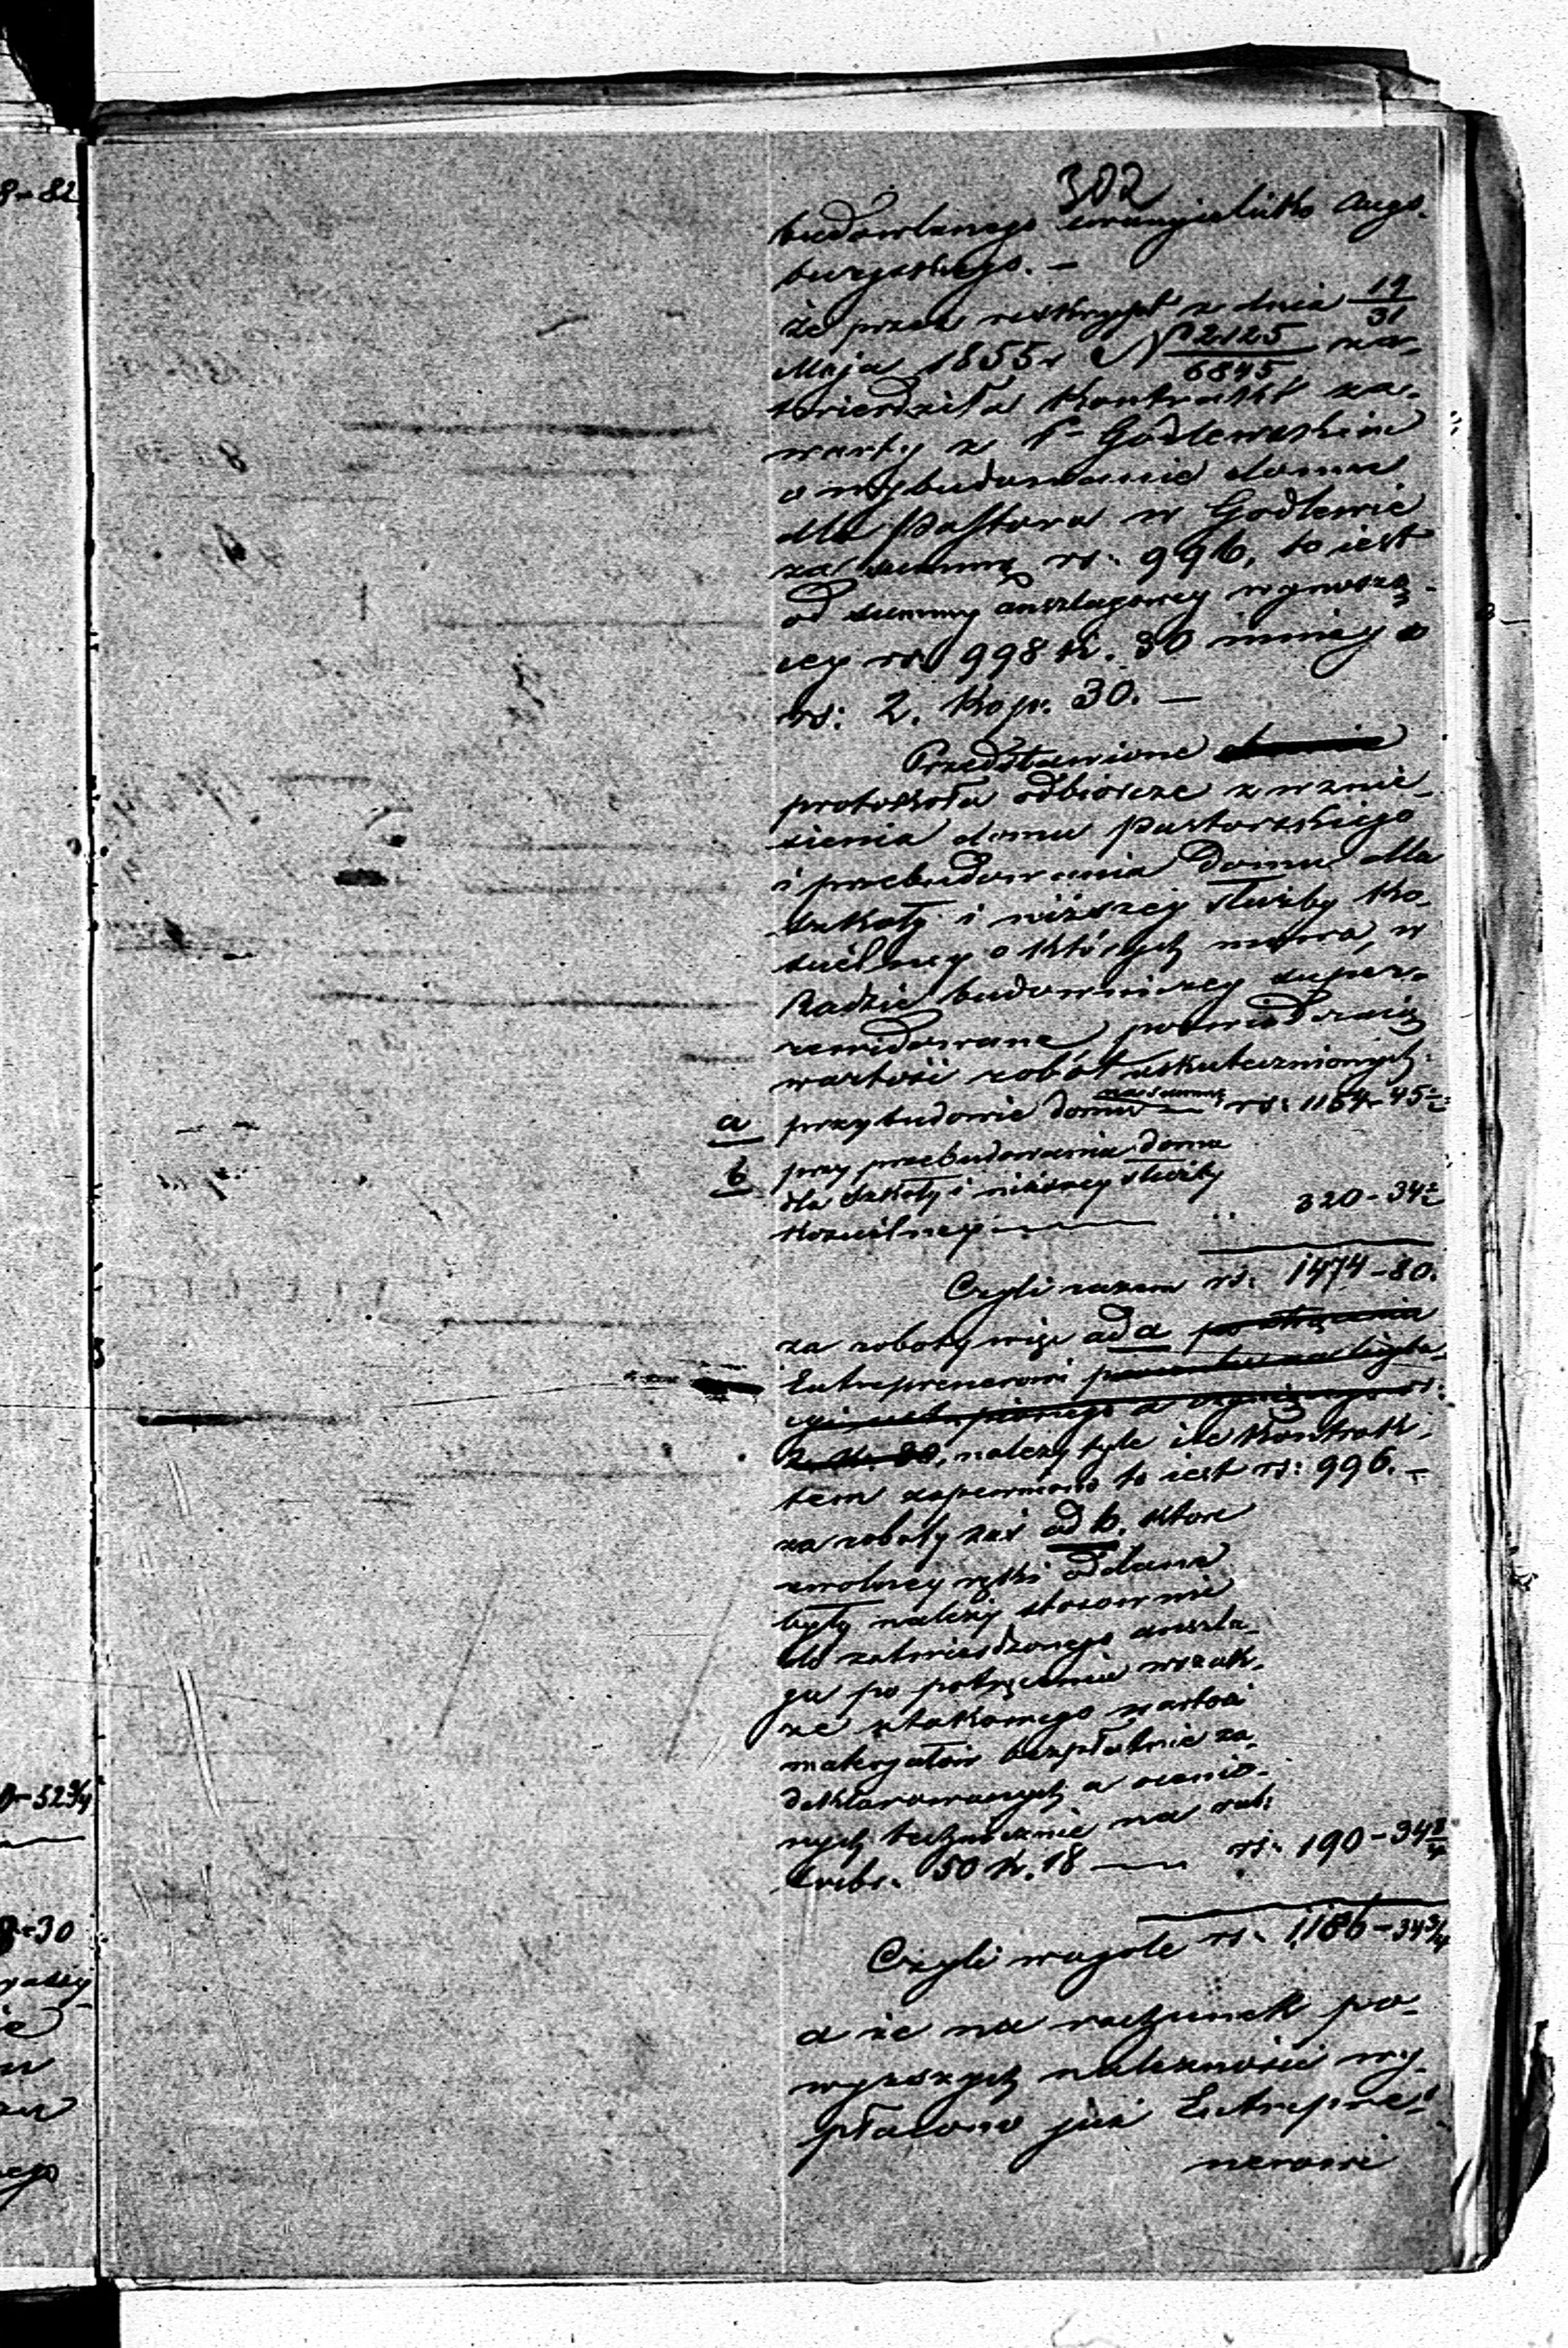 302
budowlanego ewangielicko Augs-
burgskiego. —
że przez reskrypt z dnia 19/31
Maja 1855 r N 2125/6845 za-
twierdziła kontrakt za-
warty z P. Godlewskim
o wybudowanie domu
dla Pastora w Godlewie
za summę rs: 996, to iest
od summy anszlagowey wynoszą-
cey rs. 998 k. 30 mniey o
rs: 2. kop. 30. —
Przedstawione
protokóła odbiorcze z wznie-
sienia domu Pastorskiego
i przebudowania Domu dla
szkoły i niższey służby ko-
scielney o których mowa, w
Radzie budowniczey super-
rewidowane poswiadczaią
wartość robót uskutecznionych:
a przy budowie domu na summę rs: 1154-45½
b przy przebudowaniu domu
dla szkoły i niższey służby
koscielney — „ 320-34½
Czyli razem rs: 1474-80.
za roboty więc ad a po strąceniu
Entreprenerowi procentu na licyta-
cyi postąpionego a czyniącego rs:
2. k. 30, należy tyle ile kontrak-
tem zapewniono to iest rs: 996. —
za roboty zaś ad b. które
z wolney ręki oddane
były należy stosownie
do zatwierdzonego anszla-
gu po potrąceniu wszak-
że z takowego wartosci
materyałów bezpłatnie za-
deklarowanych a ocenio-
nych technicznie na rub:
srebr. 50 k. 18 — rs: 190-34¾
Czyli wogole rs: 1186-34¾
a że na rachunek po-
wyższych należności wy-
płacono już Entrepre-
nerowi
8-82
0-52¾
8-30